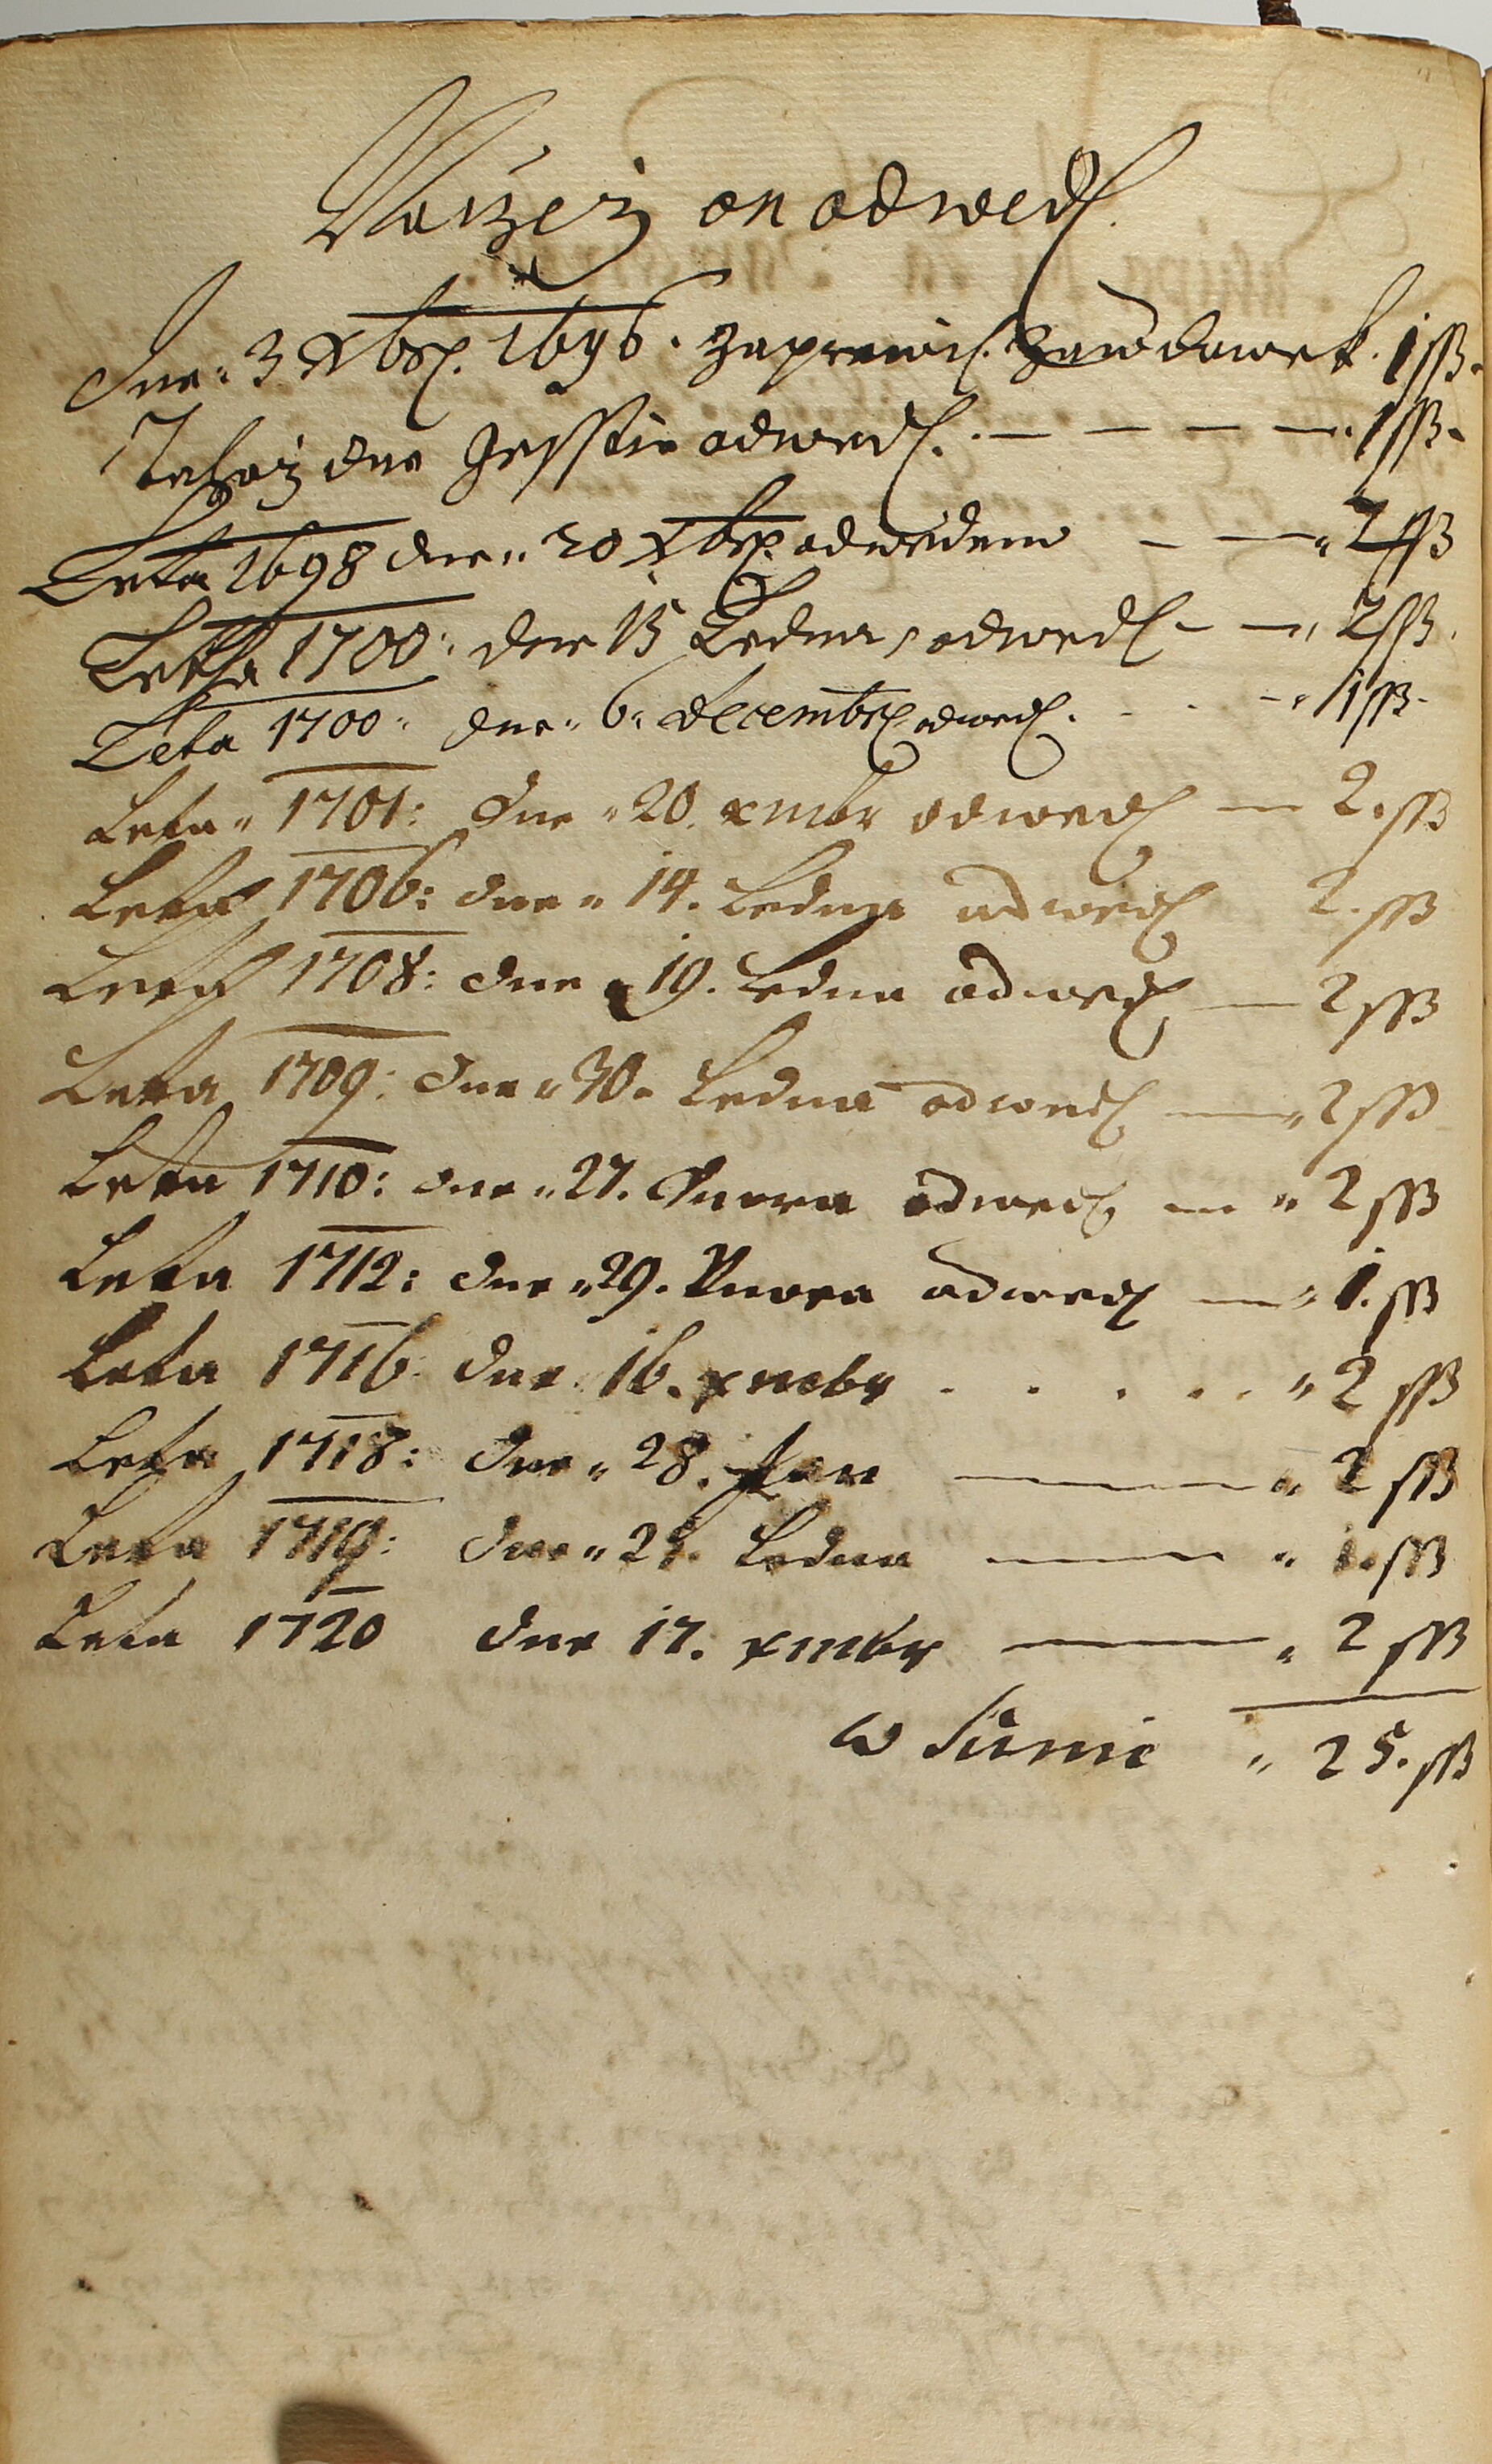 Naczež on odwedl.
Dne 3 Xbr̃. 1696. za prwnj. zawdawek. 1 ß.
Tehož dne Gesstie odwedl. — — — — 1 ß.
Leta 1698 dne 20 Xbr̃. odweden — — 2 ß
Letha 1700: dne 13 Ledna, odwedl — — 2 ß.
Leta 1700 dne 6 Decembr̃ odwedl. . . - 1 ß.
Leta 1701: dne 20. xmbr odwedl — 2. ß
Leta 1706: dne 14. Ledna odwedl 2. ß
Leta 1708: dne 19. Ledna odwedl — 2 ß
Leta 1709: dne 30. Ledna odwedl — 2 ß
Leta 1710: dne 27. Unora odwedl — 2 ß
Leta 1712: dne 29. Unora odwedl — 1. ß
Leta 1716 dne 16. xmbr . . . . . 2 ß
Leta 1718: dne 28. Jan — 2 ß
Leta 1719: dne 24. Ledna — 1. ß
Leta 1720 dne 17. xmbr — 2 ß
w Sumie 25. ß